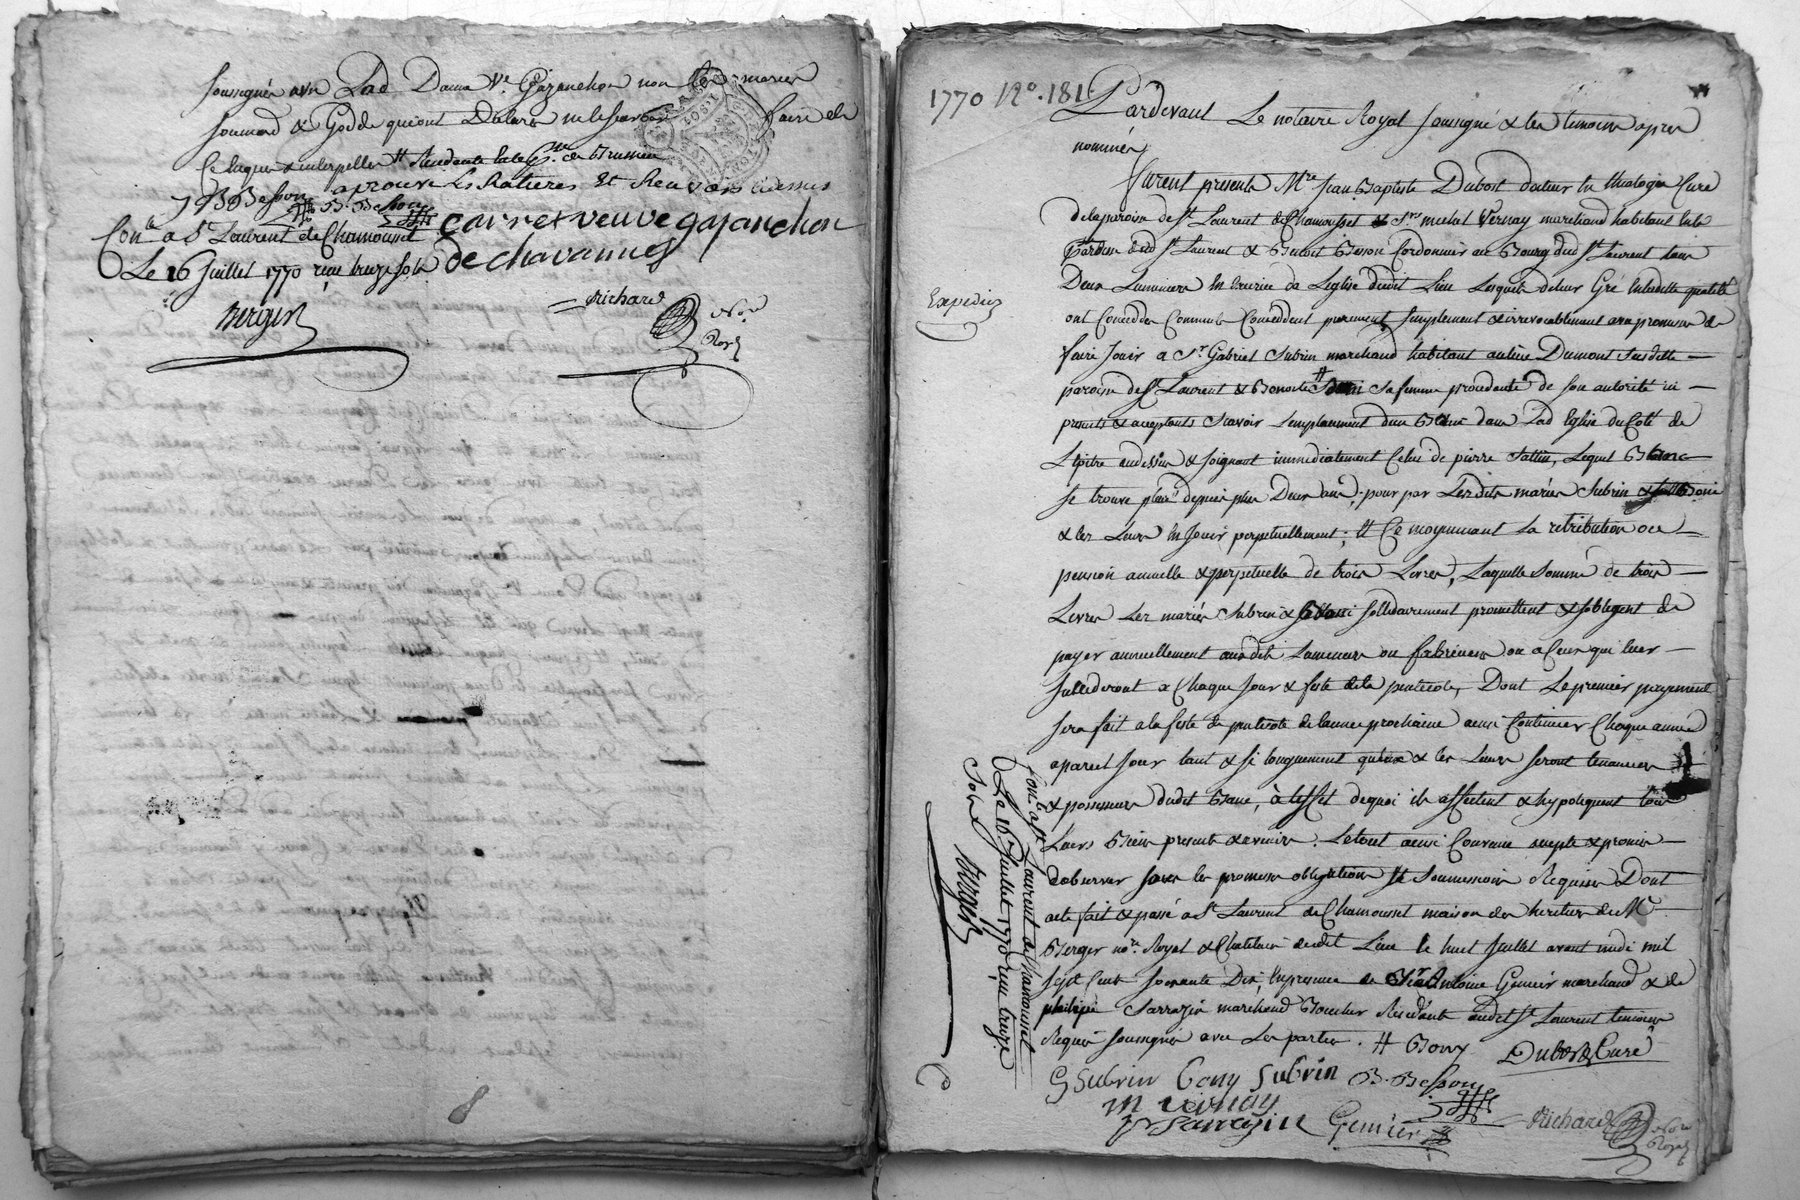 soussignés avec Lad Dame Ve Gajanchon non les mariés
Soumard & Godde qui ont Declaré ne le scavoir faire de
Ce Enquis & interpellés # Residente
aprouvé Les Ratures Et Renvois cidessus
J B Besson B. Besson
carret veuve gajanchon
de chavannes
Con.le a St Laurent de Chamousset
Le 16 Juillet 1770 reçu treize sols
Berger
Richard
No.re
Royal
1770 No. 181
Pardevant Le notaire Royal soussigné & les temoins apres
nommés
furent presents Mre Jean Baptiste Dubost docteur en theologie Curé
de la paroisse de St Laurent de Chamousset & Srs michel Vernay marchand habitant
dud St Laurent & Benoit Besson Cordonnier au Bourg dud St Laurent tous
Deux Luminiers en exercice de Leglise dudit Lieu Lesquels de leur Gré Ensdittes qualités
ont Conceddé Comme ils Conceddent purement simplement & irrevocablement avec promesse de
faire Jouir a Sr Gabriel Subrin marchand habitant au lieu Dumont susditte
Expediée
paroisse de St Laurent & Benoite # sa femme procedante de son autorité ici
presents & acceptants Scavoir Lemplacement dun Banc dans Lad Eglise du Coté de
Lepitre audessus & Joignant immediatement Celui de pierre Lequel Banc
se trouve placé depuis plus Deux ans, pour par Lesdits mariés Subrin
& les Leurs en Jouir perpetuellement; # Ce moyennant La retribution ou
pension annuelle & perpetuelle de trois Livres, Laquelle Somme de trois
Livres Les mariés Subrin & sollidairement promettent & sobligent de
payer annuellement auxdits Luminiers ou fabriciens ou a Ceux qui leur
succederont a Chaque Jour & feste de la pentecote, Dont Le premier payement
sera fait a la feste de pentecote de lannée prochaine ainsi Continuer Chaque année
a pareil Jour tant & si longuement queux & les Leurs seront tenanciers
& possesseurs dudit Banc, à leffet dequoi ils affectent & hypotequent tous
Leurs Biens presents & avenirs. Letout ainsi Convenu accepté & promis
dobserver sous les promesses obligations # Soumissions Requises Dont
acte fait & passé a St Laurent de Chamousset maison des heritiers de Me
Berger nore Royal & Chatelain dudit Lieu le huit Juillet avant midi mil
sept Cent soixante Dix, En presence de Sr Antoine Gemier marchand & de
philipe Sarrazin marchand Boucher Residants audit St Laurent temoins
Requis soussignés avec Les parties. # Bony Dubost Curé
G Subrin Bony Subrin B. Besson
m vernay
P Sarrazin Gemier Richard No.re
Royal
Con.le a St Laurent de Chamousset
Le 16 Juillet 1770 reçu treize
Sols Berger